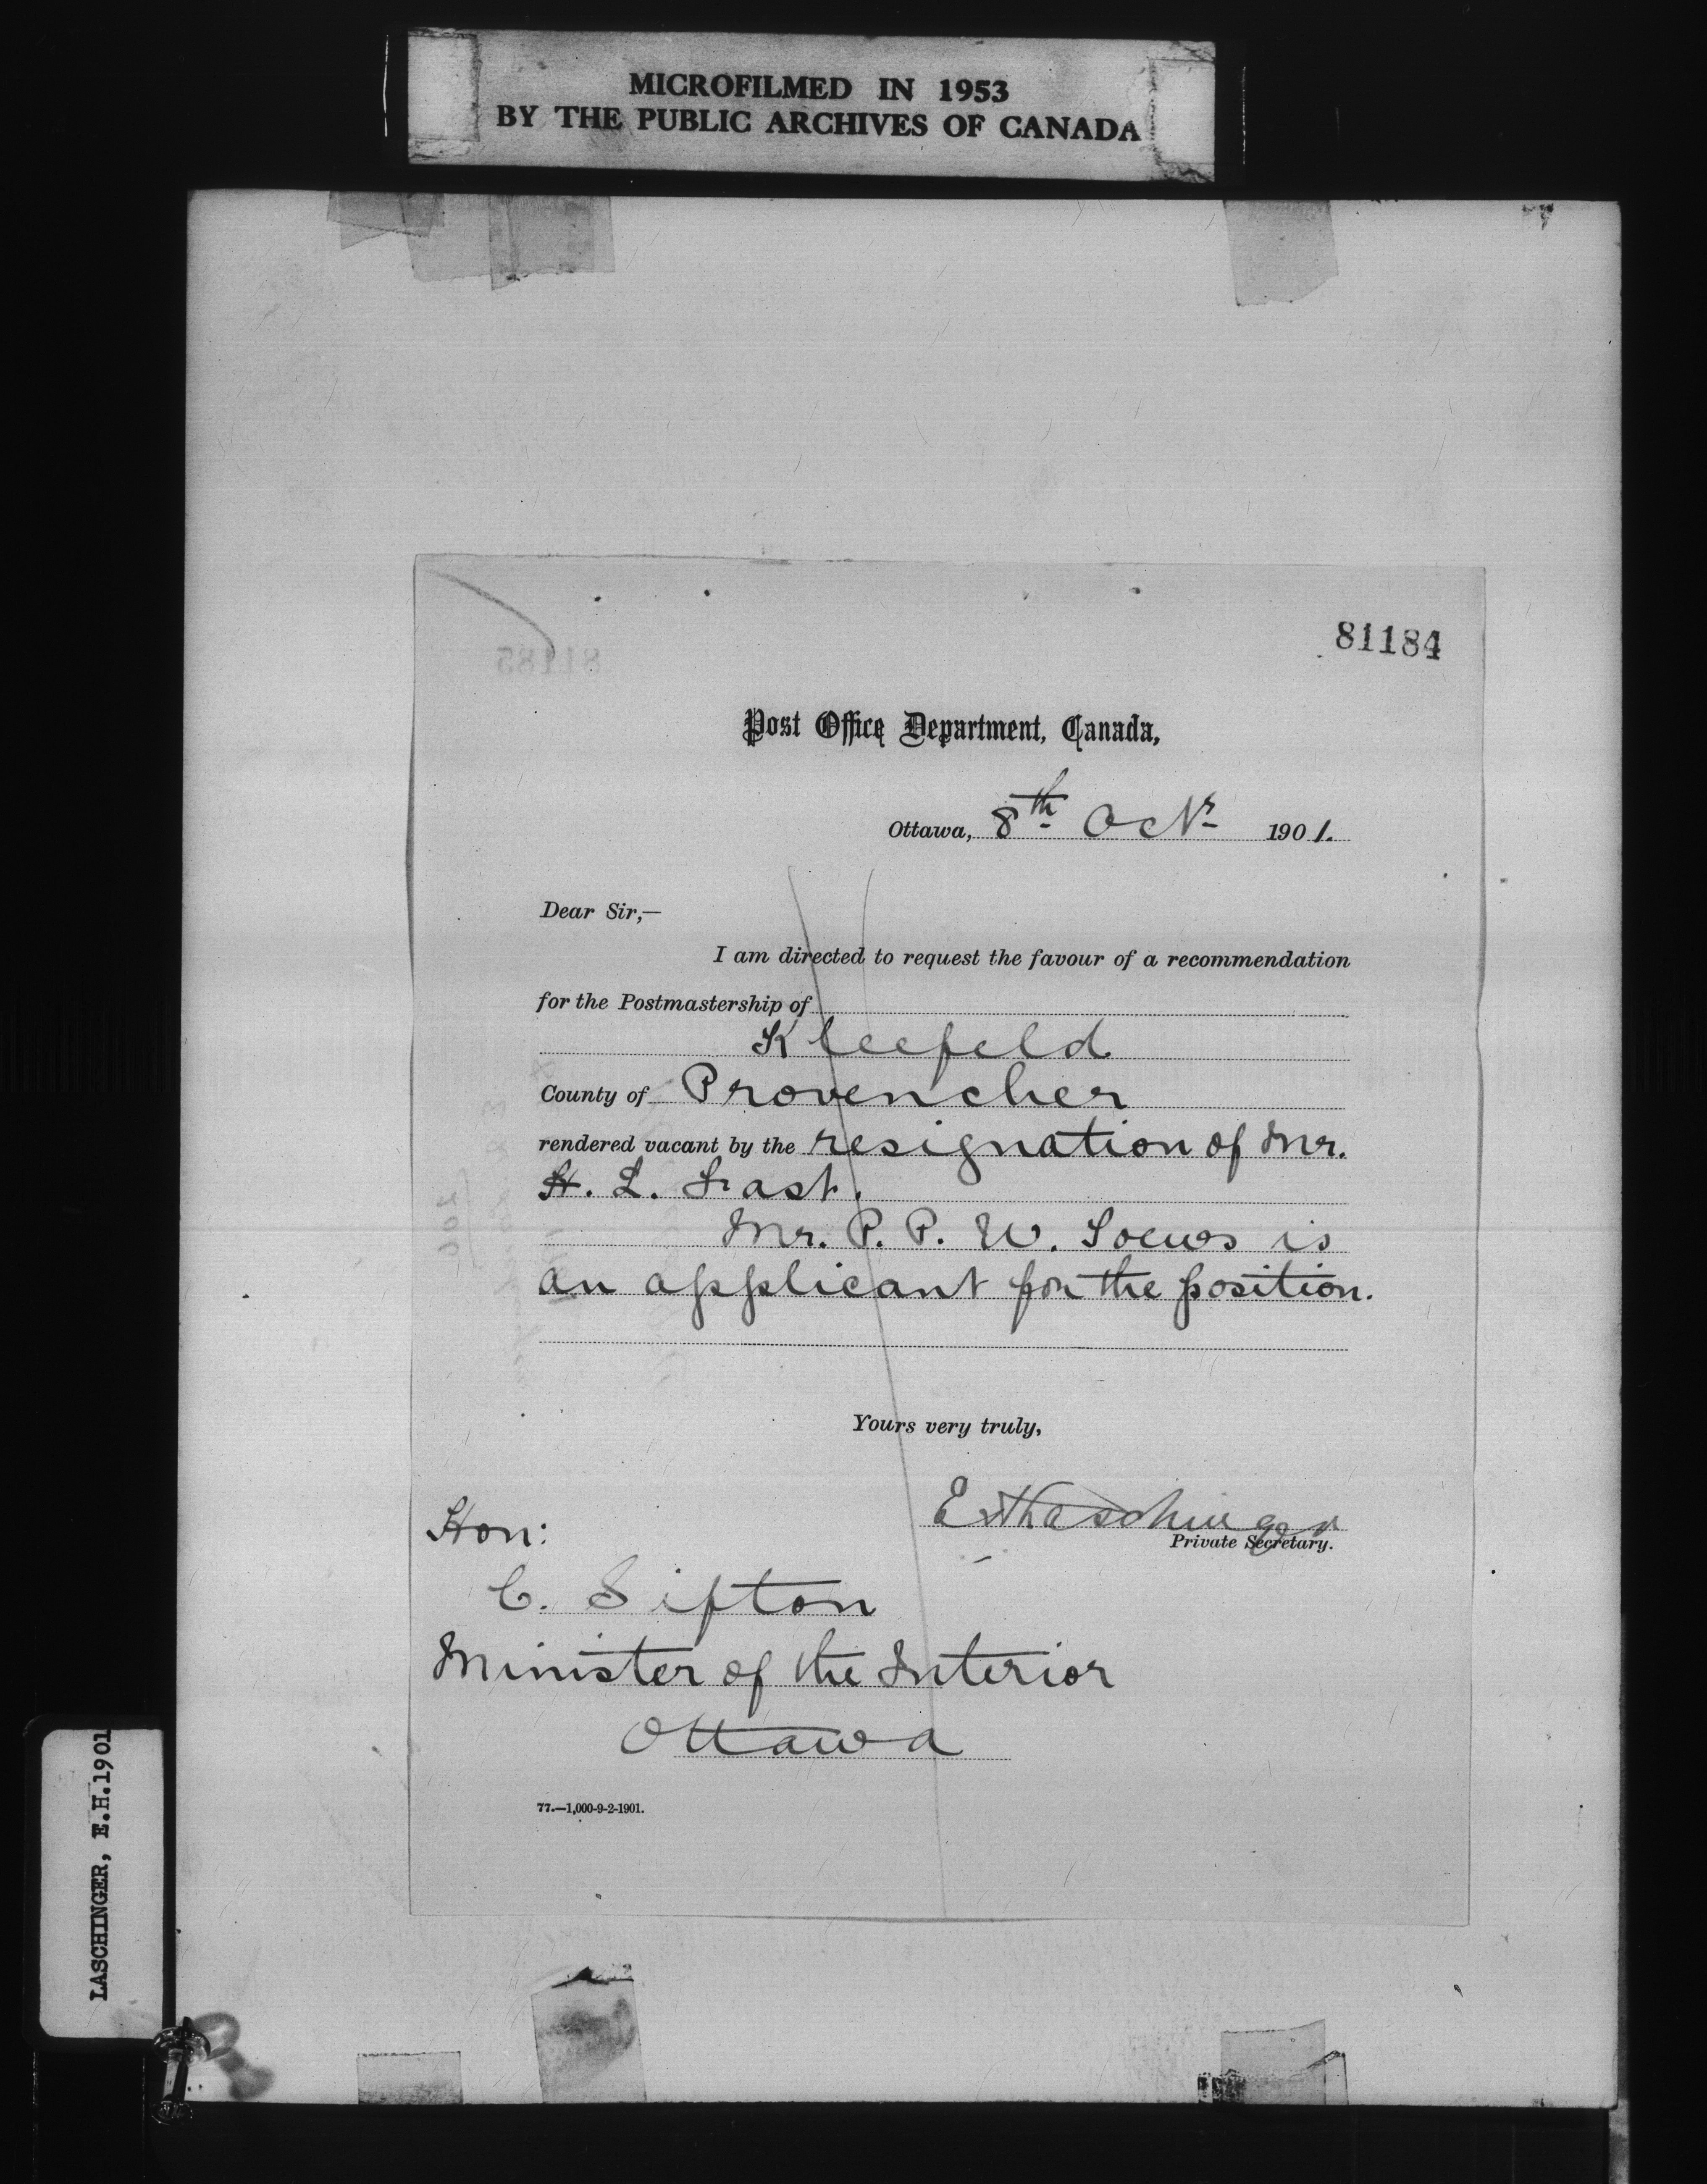 MICROFILMED IN 1953
BY THE PUBLIC ARCHIVES OF CANADA
81184
81185
Post Office Department, Canada,
Ottawa, 8th Octr 1901.
Dear Sir,—
I am directed to request the favour of a recommendation
for the Postmastership of
Kleefeld
County of Provencher
rendered vacant by the resignation of Mr.
H. L. Fast.
Mr. P. P. W. Toews is
an applicant for the position.
Yours very truly,
E H Laschinger
Private Secretary.
Hon:
C. Sifton
Minister of the Interior
Ottawa
77.—1,000-9-2-1901.
LASCHINGER, E.H.1901